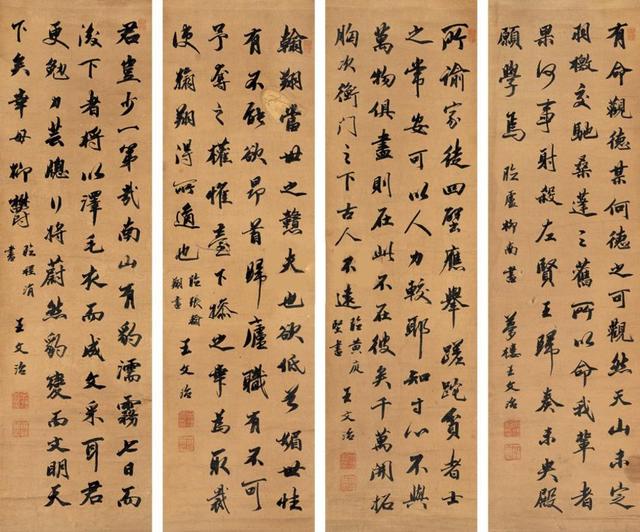 有命觀德某何德之可觀然天山未定
羽檄交馳桑蓬之舊所以命我輩者
果何事射殺左賢王歸奏未央殿
願學焉 臨盧柳南書 夢樓王文治
所諭家徒四壁應舉蹉跎貧者士
之常安可以人力較耶知寸心不與
萬物俱盡則在此不在彼矣千萬開拓
胸次衡門之下古人不遠 臨黃庭
堅書 王文治
翰翔當世之戇夫也欲低首媚世性
有不能欲昂首歸廬職有不可
予奪之權惟臺下操之幸為取裁
使翰翔得所適也 臨張翰
翔書 王文治
君豈少一第哉南山有豹濡霧七日而
後下者將以澤毛衣而成文采耳君
更勉力芸牕行將蔚然豹變而文明天
下矣幸毋抑鬱 臨程洵
書 王文治